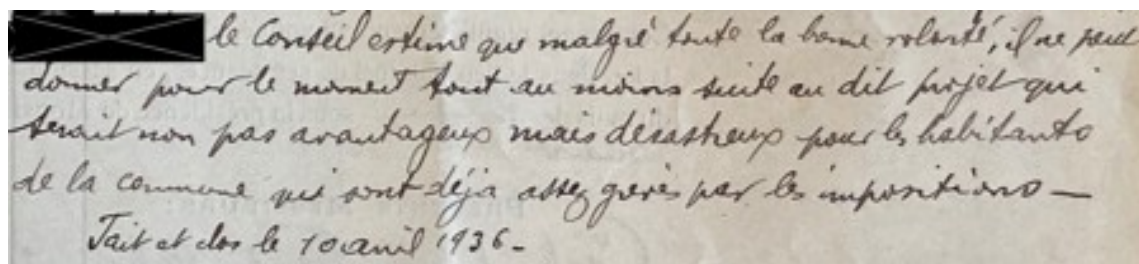 le Conseil estime que malgré toute la bonne volonté, il ne peut
donner pour le moment tout au moins suite au dit projet qui
serait non pas avantageux mais désastreux pour les habitants
de la commune qui sont déja assez grevés par les impositions —
Fait et clos le 10 avril 1936 -